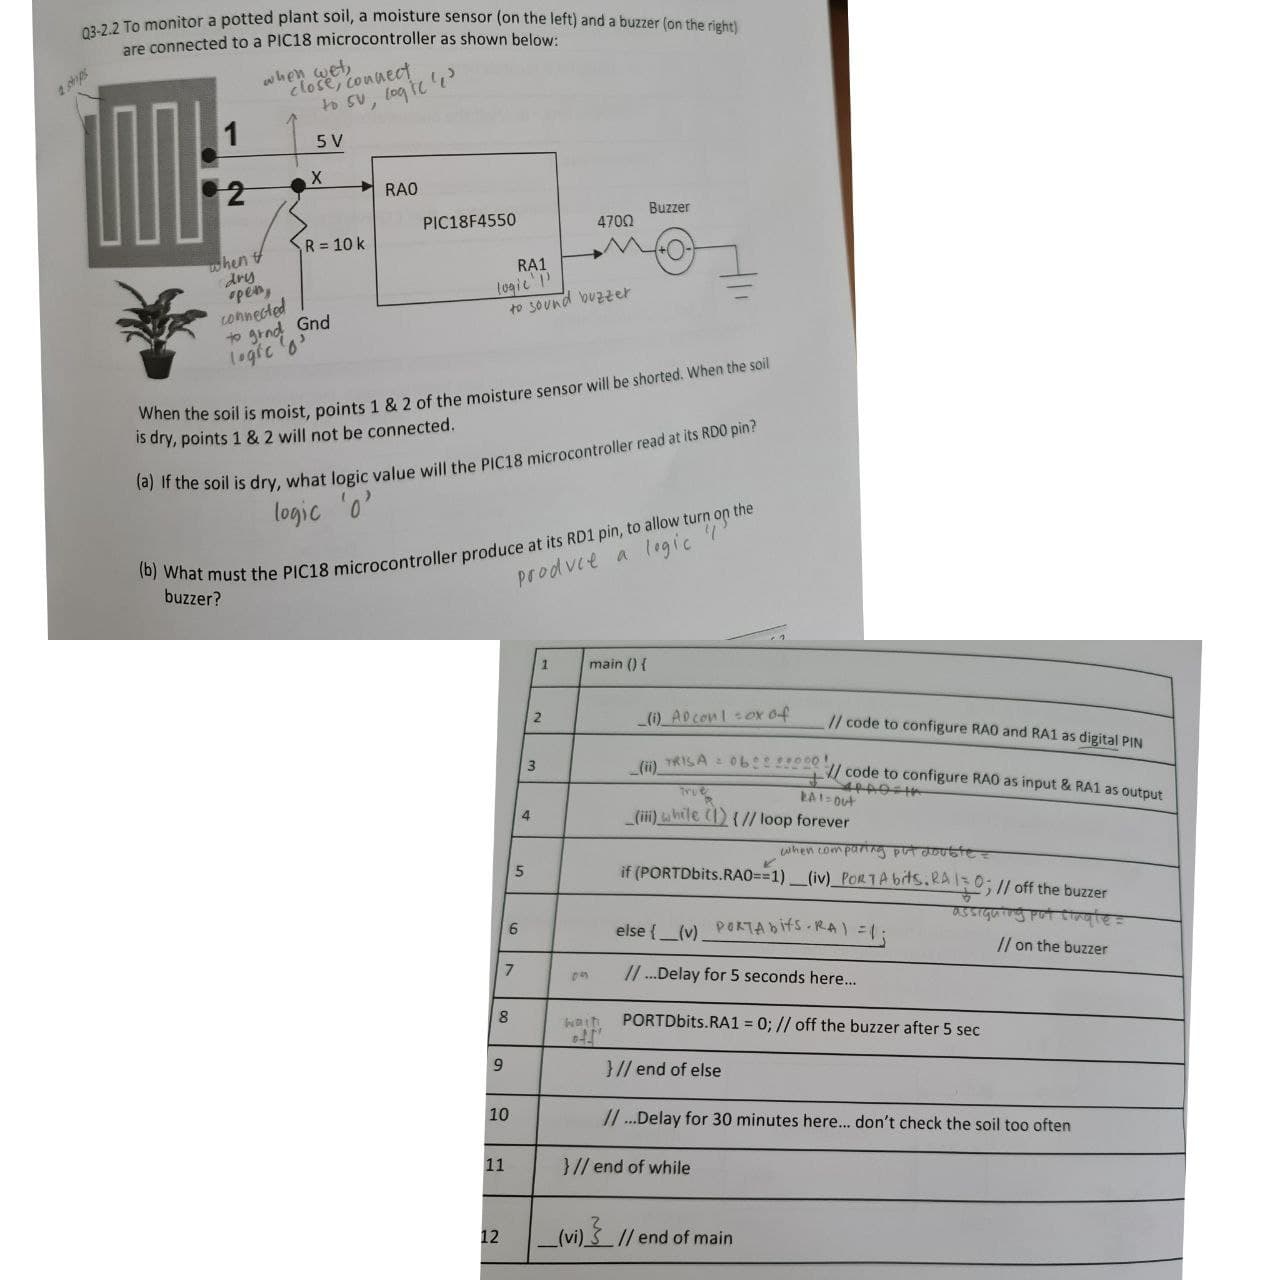 Q3-2.2 To monitor a potted plant soil, a moisture sensor (on the left) and a buzzer (on the right)
are connected to a PIC18 microcontroller as shown below:
2 strips
when wet,
close, connect
to 5V, logic '1'
1
5 V
2
X
RA0
PIC18F4550
470Ω
Buzzer
R = 10 k
RA1
logic '1'
to sound buzzer
when
dry
open,
connected
to grnd
logic '0'
Gnd
When the soil is moist, points 1 & 2 of the moisture sensor will be shorted. When the soil
is dry, points 1 & 2 will not be connected.
(a) If the soil is dry, what logic value will the PIC18 microcontroller read at its RD0 pin?
logic '0'
(b) What must the PIC18 microcontroller produce at its RD1 pin, to allow turn on the
buzzer?
produce a logic '1'
1 main () {
2 _(i) ADCON1 = 0x0f // code to configure RA0 and RA1 as digital PIN
3 _(ii) TRISA = 0b00000001 // code to configure RA0 as input & RA1 as output
True
RA1=out
RA0=in
4 _(iii) while (1) { // loop forever
when comparing put double =
5 if (PORTDbits.RA0==1) __(iv) PORTAbits.RA1=0; // off the buzzer
assigning put single =
6 else { __(v) PORTAbits.RA1 =1; // on the buzzer
7 on // ...Delay for 5 seconds here...
8 wait PORTDbits.RA1 = 0; // off the buzzer after 5 sec
off
9 } // end of else
10 // ...Delay for 30 minutes here... don't check the soil too often
11 } // end of while
12 __(vi) } // end of main